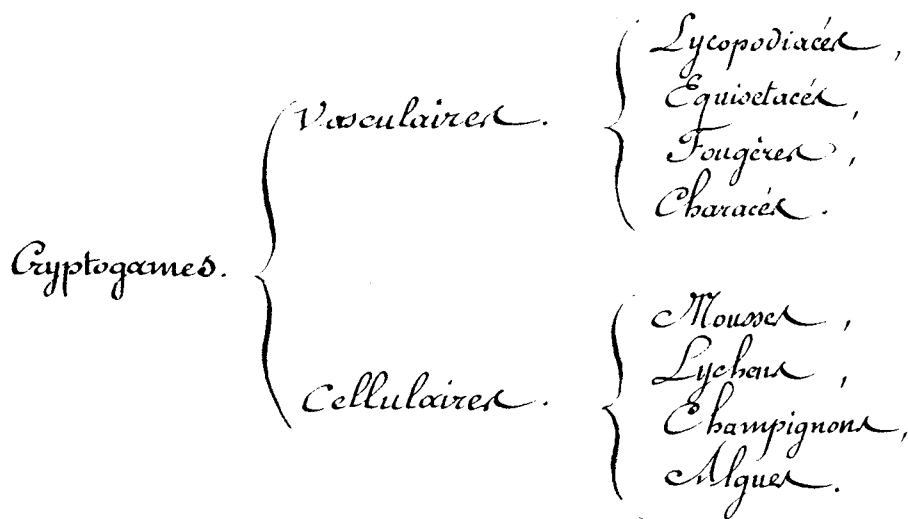 Cryptogames.
Vasculaires.
Lycopodiacés,
Equisetacés,
Fougères,
Characés.
Cellulaires.
Mousses,
Lychens,
Champignons,
Algues.